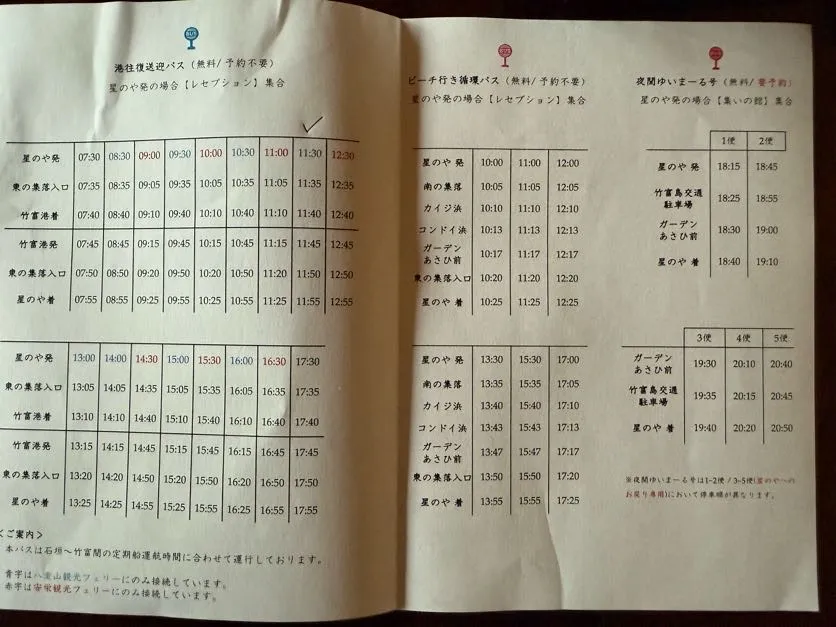 港往復送迎バス（無料/予約不要）
星のや発の場合【レセプション】集合
星のや発 07:30 08:30 09:00 09:30 10:00 10:30 11:00 11:30 12:30
東の集落入口 07:35 08:35 09:05 09:35 10:05 10:35 11:05 11:35 12:35
竹富港着 07:40 08:40 09:10 09:40 10:10 10:40 11:10 11:40 12:40
竹富港発 07:45 08:45 09:15 09:45 10:15 10:45 11:15 11:45 12:45
東の集落入口 07:50 08:50 09:20 09:50 10:20 10:50 11:20 11:50 12:50
星のや着 07:55 08:55 09:25 09:55 10:25 10:55 11:25 11:55 12:55
星のや発 13:00 14:00 14:30 15:00 15:30 16:00 16:30 17:30
東の集落入口 13:05 14:05 14:35 15:05 15:35 16:05 16:35 17:35
竹富港着 13:10 14:10 14:40 15:10 15:40 16:10 16:40 17:40
竹富港発 13:15 14:15 14:45 15:15 15:45 16:15 16:45 17:45
東の集落入口 13:20 14:20 14:50 15:20 15:50 16:20 16:50 17:50
星のや着 13:25 14:25 14:55 15:25 15:55 16:25 16:55 17:55
＜ご案内＞
本バスは石垣〜竹富間の定期船運航時間に合わせて運行しております。
青字は八重山観光フェリーにのみ接続しています。
赤字は安栄観光フェリーにのみ接続しています。
ビーチ行き循環バス（無料/予約不要）
星のや発の場合【レセプション】集合
星のや 発 10:00 11:00 12:00
南の集落 10:05 11:05 12:05
カイジ浜 10:10 11:10 12:10
コンドイ浜 10:13 11:13 12:13
ガーデン
あさひ前 10:17 11:17 12:17
東の集落入口 10:20 11:20 12:20
星のや 着 10:25 11:25 12:25
星のや 発 13:30 15:30 17:00
南の集落 13:35 15:35 17:05
カイジ浜 13:40 15:40 17:10
コンドイ浜 13:43 15:43 17:13
ガーデン
あさひ前 13:47 15:47 17:17
東の集落入口 13:50 15:50 17:20
星のや 着 13:55 15:55 17:25
夜間ゆいまーる号（無料/要予約）
星のや発の場合【集いの館】集合
1便 2便
星のや 発 18:15 18:45
竹富島交通
駐車場 18:25 18:55
ガーデン
あさひ前 18:30 19:00
星のや 着 18:40 19:10
3便 4便 5便
ガーデン
あさひ前 19:30 20:10 20:40
竹富島交通
駐車場 19:35 20:15 20:45
星のや 着 19:40 20:20 20:50
※夜間ゆいまーる号は1-2便/3-5便(星のやへの
お戻り専用)において停車順が異なります。